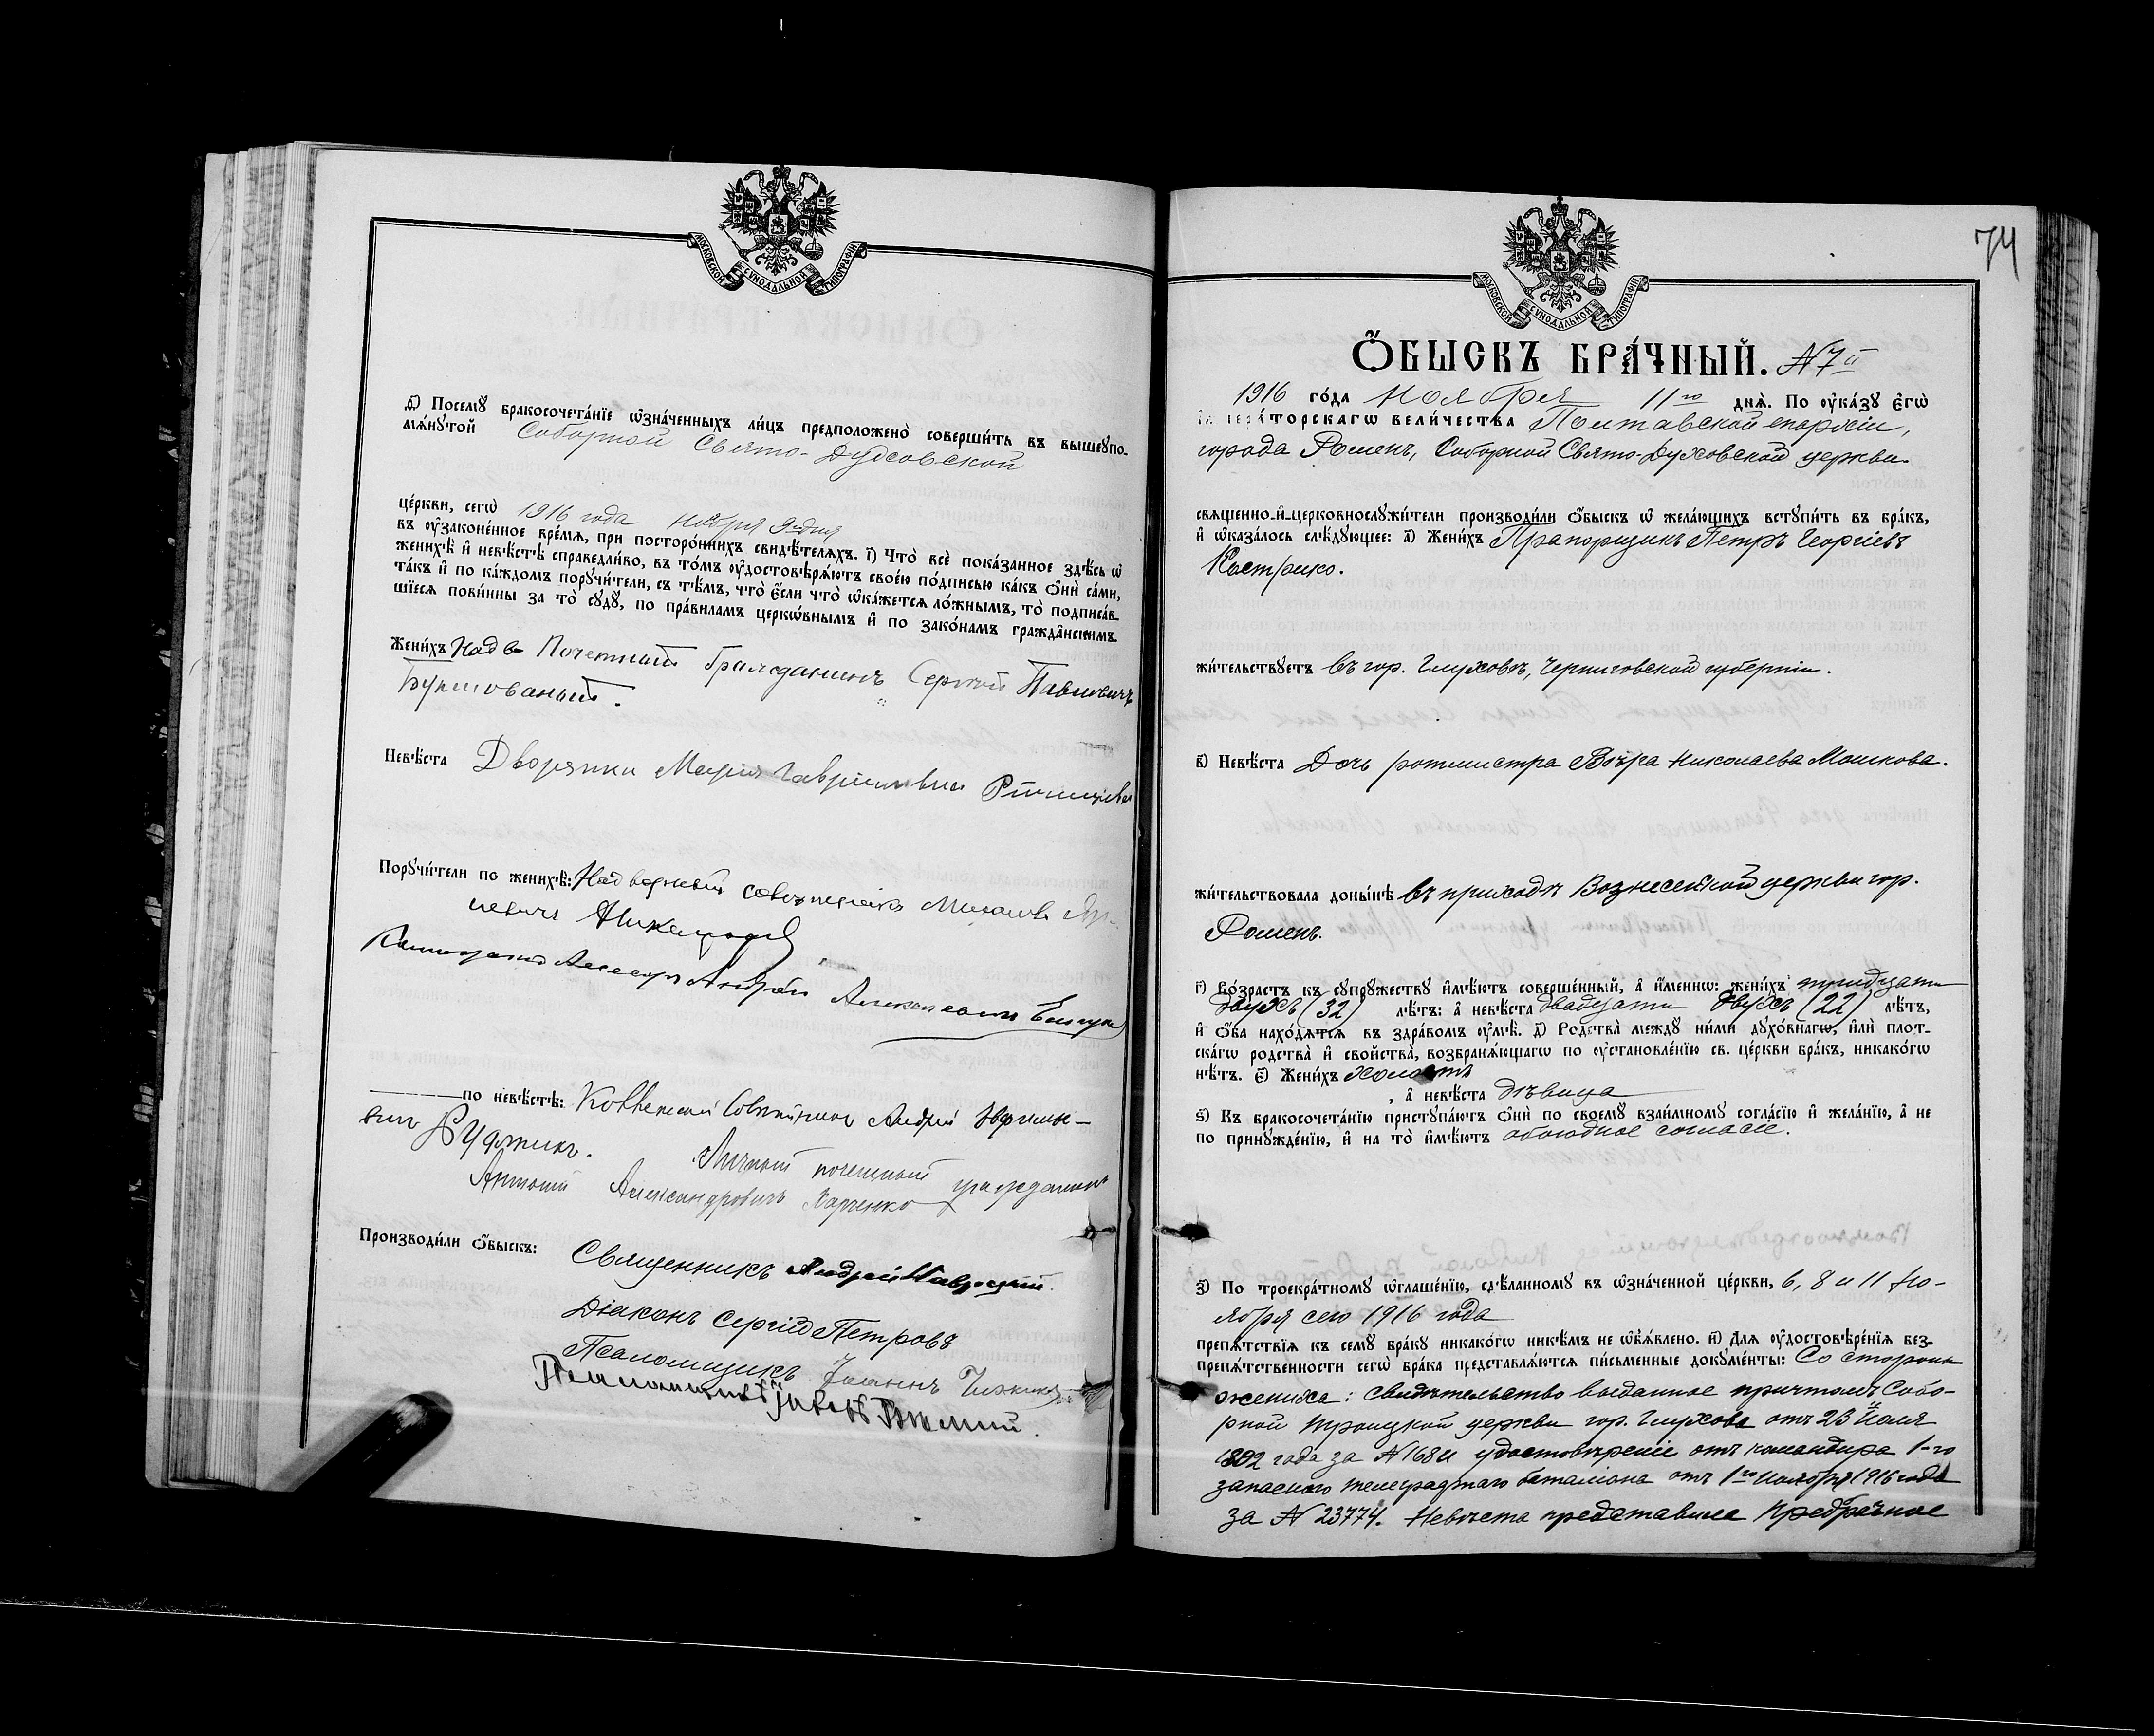 МОСКОВСКОЙ СѴНОДАЛЬНОЙ ТИПОГРАФІИ
ѳ҃) Посемꙋ̀ бракосочета́нїе ѡ҆зна́ченныхъ ли́цъ предположено̀ соверши́ть въ вышеꙋпо-
мѧ́нꙋтой Соборной Свято-Духовской
це́ркви, сегѡ̀ 1916 года Ноября 9 дня
въ ᲂу҆законе́нное вре́мѧ, при посторо́ннихъ свидѣ́телѧхъ. і҃) Что̀ всѐ пока́занное здѣ́сь ѡ҆
женихѣ̀ и҆ невѣ́стѣ справедли́во, въ то́мъ ᲂу҆достовѣрѧ́ютъ свое́ю по́дписью ка́къ ѻ҆нѝ са́ми,
та́къ и҆ по ка́ждомъ порꙋчи́тели, съ тѣ́мъ, что̀ є҆́сли что̀ ѡ҆ка́жетсѧ ло́жнымъ, то̀ подписа́в-
шїесѧ пови́нны за то̀ сꙋдꙋ̀, по пра́виламъ церкѡ́внымъ и҆ по зако́намъ гражда́нскимъ.
Жени́хъ Почетный Гражданинъ Сергей Павловичъ
Невѣ́ста Дворянка Марія Гавріиловна
Порꙋчи́тели по женихѣ̀: Надворный совѣтникъ
Андрей Алексеевичъ
по невѣ́стѣ: Коллежскій Совѣтникъ Андрей
Личный почетный гражданинъ
Антоній Александровичъ Харченко
Производи́ли ѻ҆́быскъ:
Священникъ Андрей Навроцкий.
Діаконъ Сергій Петровъ
Псаломщикъ Іоаннъ
Псаломщикъ
74
МОСКОВСКОЙ СѴНОДАЛЬНОЙ ТИПОГРАФІИ
Ѻ҆́БЫСКЪ БРА́ЧНЫЙ. N 7й
1916 го́да Ноября 11го днѧ̀. По ᲂу҆ка́зꙋ є҆гѡ̀
и҆мпера́торскагѡ вели́чества Полтавской епархіи,
города Роменъ, Соборной Свято-Духовской церкви
свѧще́нно-и҆-церковнослꙋжи́тели производи́ли ѻ҆́быскъ ѡ҆ жела́ющихъ встꙋпи́ть въ бра́къ,
и҆ ѡ҆каза́лось слѣ́дꙋющее: а҃) Жени́хъ Прапорщикъ Петръ Георгіевъ
Кострико.
жи́тельствꙋетъ въ гор. Глуховѣ, Черниговской губерніи.
в҃) Невѣ́ста Дочь ротмистра Вѣра Николаева Машкова.
жи́тельствовала доны́нѣ въ приходѣ Вознесенской церкви гор.
Роменъ.
г҃) Во́зрастъ къ сꙋпрꙋ́жествꙋ и҆мѣ́ютъ соверше́нный, а҆ и҆́менно: жени́хъ тридцати
двухъ (32) лѣ́тъ: а҆ невѣ́ста двадцати двухъ (22) лѣ́тъ,
и҆ ѻ҆́ба нахо́дѧтсѧ въ здра́вомъ ᲂу҆мѣ̀. д҃) Родства̀ междꙋ ни́ми дꙋхо́внагѡ, и҆лѝ плот-
ска́гѡ родства̀ и҆ свойства̀, возбранѧ́ющагѡ по ᲂу҆становле́нїю св. це́ркви бра́къ, никако́гѡ
нѣ́тъ. є҃) Жени́хъ холостъ
, а҆ невѣ́ста дѣвица
ѕ҃) Къ бракосочета́нїю пристꙋпа́ютъ ѻ҆нѝ по своемꙋ̀ взаи́мномꙋ согла́сїю и҆ жела́нїю, а҆ не
по принꙋжде́нїю, и҆ на то̀ и҆мѣ́ютъ обоюдное согласіе.
з҃) По троекра́тномꙋ ѡ҆глаше́нїю, сдѣ́ланномꙋ въ ѡ҆зна́ченной це́ркви, 6, 8 и 11 Но-
ября сего 1916 года
препѧ́тствїѧ къ семꙋ̀ бра́кꙋ никако́гѡ никѣ́мъ не ѡ҆б̾ѧ́влено. и҃) Длѧ̀ ᲂу҆достовѣре́нїѧ без-
препѧ́тственности сегѡ̀ бра́ка представлѧ́ютсѧ пи́сьменные докꙋме́нты: Со стороны
жениха: свидѣтельство выданное причтомъ Собо-
рной Троицкой церкви гор. Глухова отъ 23 Іюля
1892 года за N 168 и удостовѣреніе отъ командира 1-го
запасного телеграфнаго баталіона отъ 1го ноября 1916 года
за N 23774. Невѣста представила Предбрачное